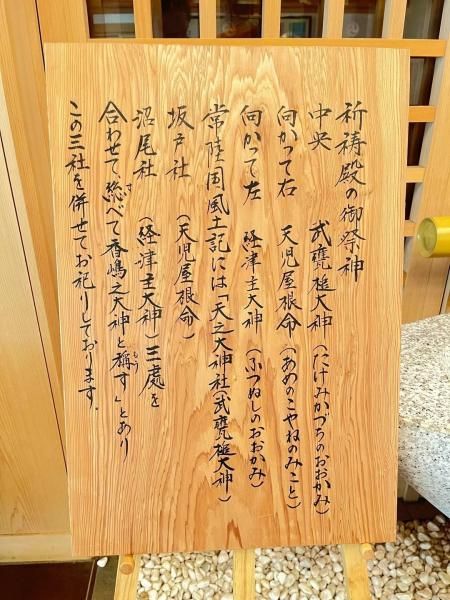 祈祷殿の御祭神
中央　武甕槌大神（たけみかづちのおおかみ）
向かって右　天児屋根命（あめのこやねのみこと）
向かって左　経津主大神（ふつぬしのおおかみ）
常陸国風土記には「天之大神社（武甕槌大神）
坂戸社（天児屋根命）
沼尾社（経津主大神）三處を
合わせて、総べて香嶋之大神と稱す」とあり
この三社を併せてお祀りしております．